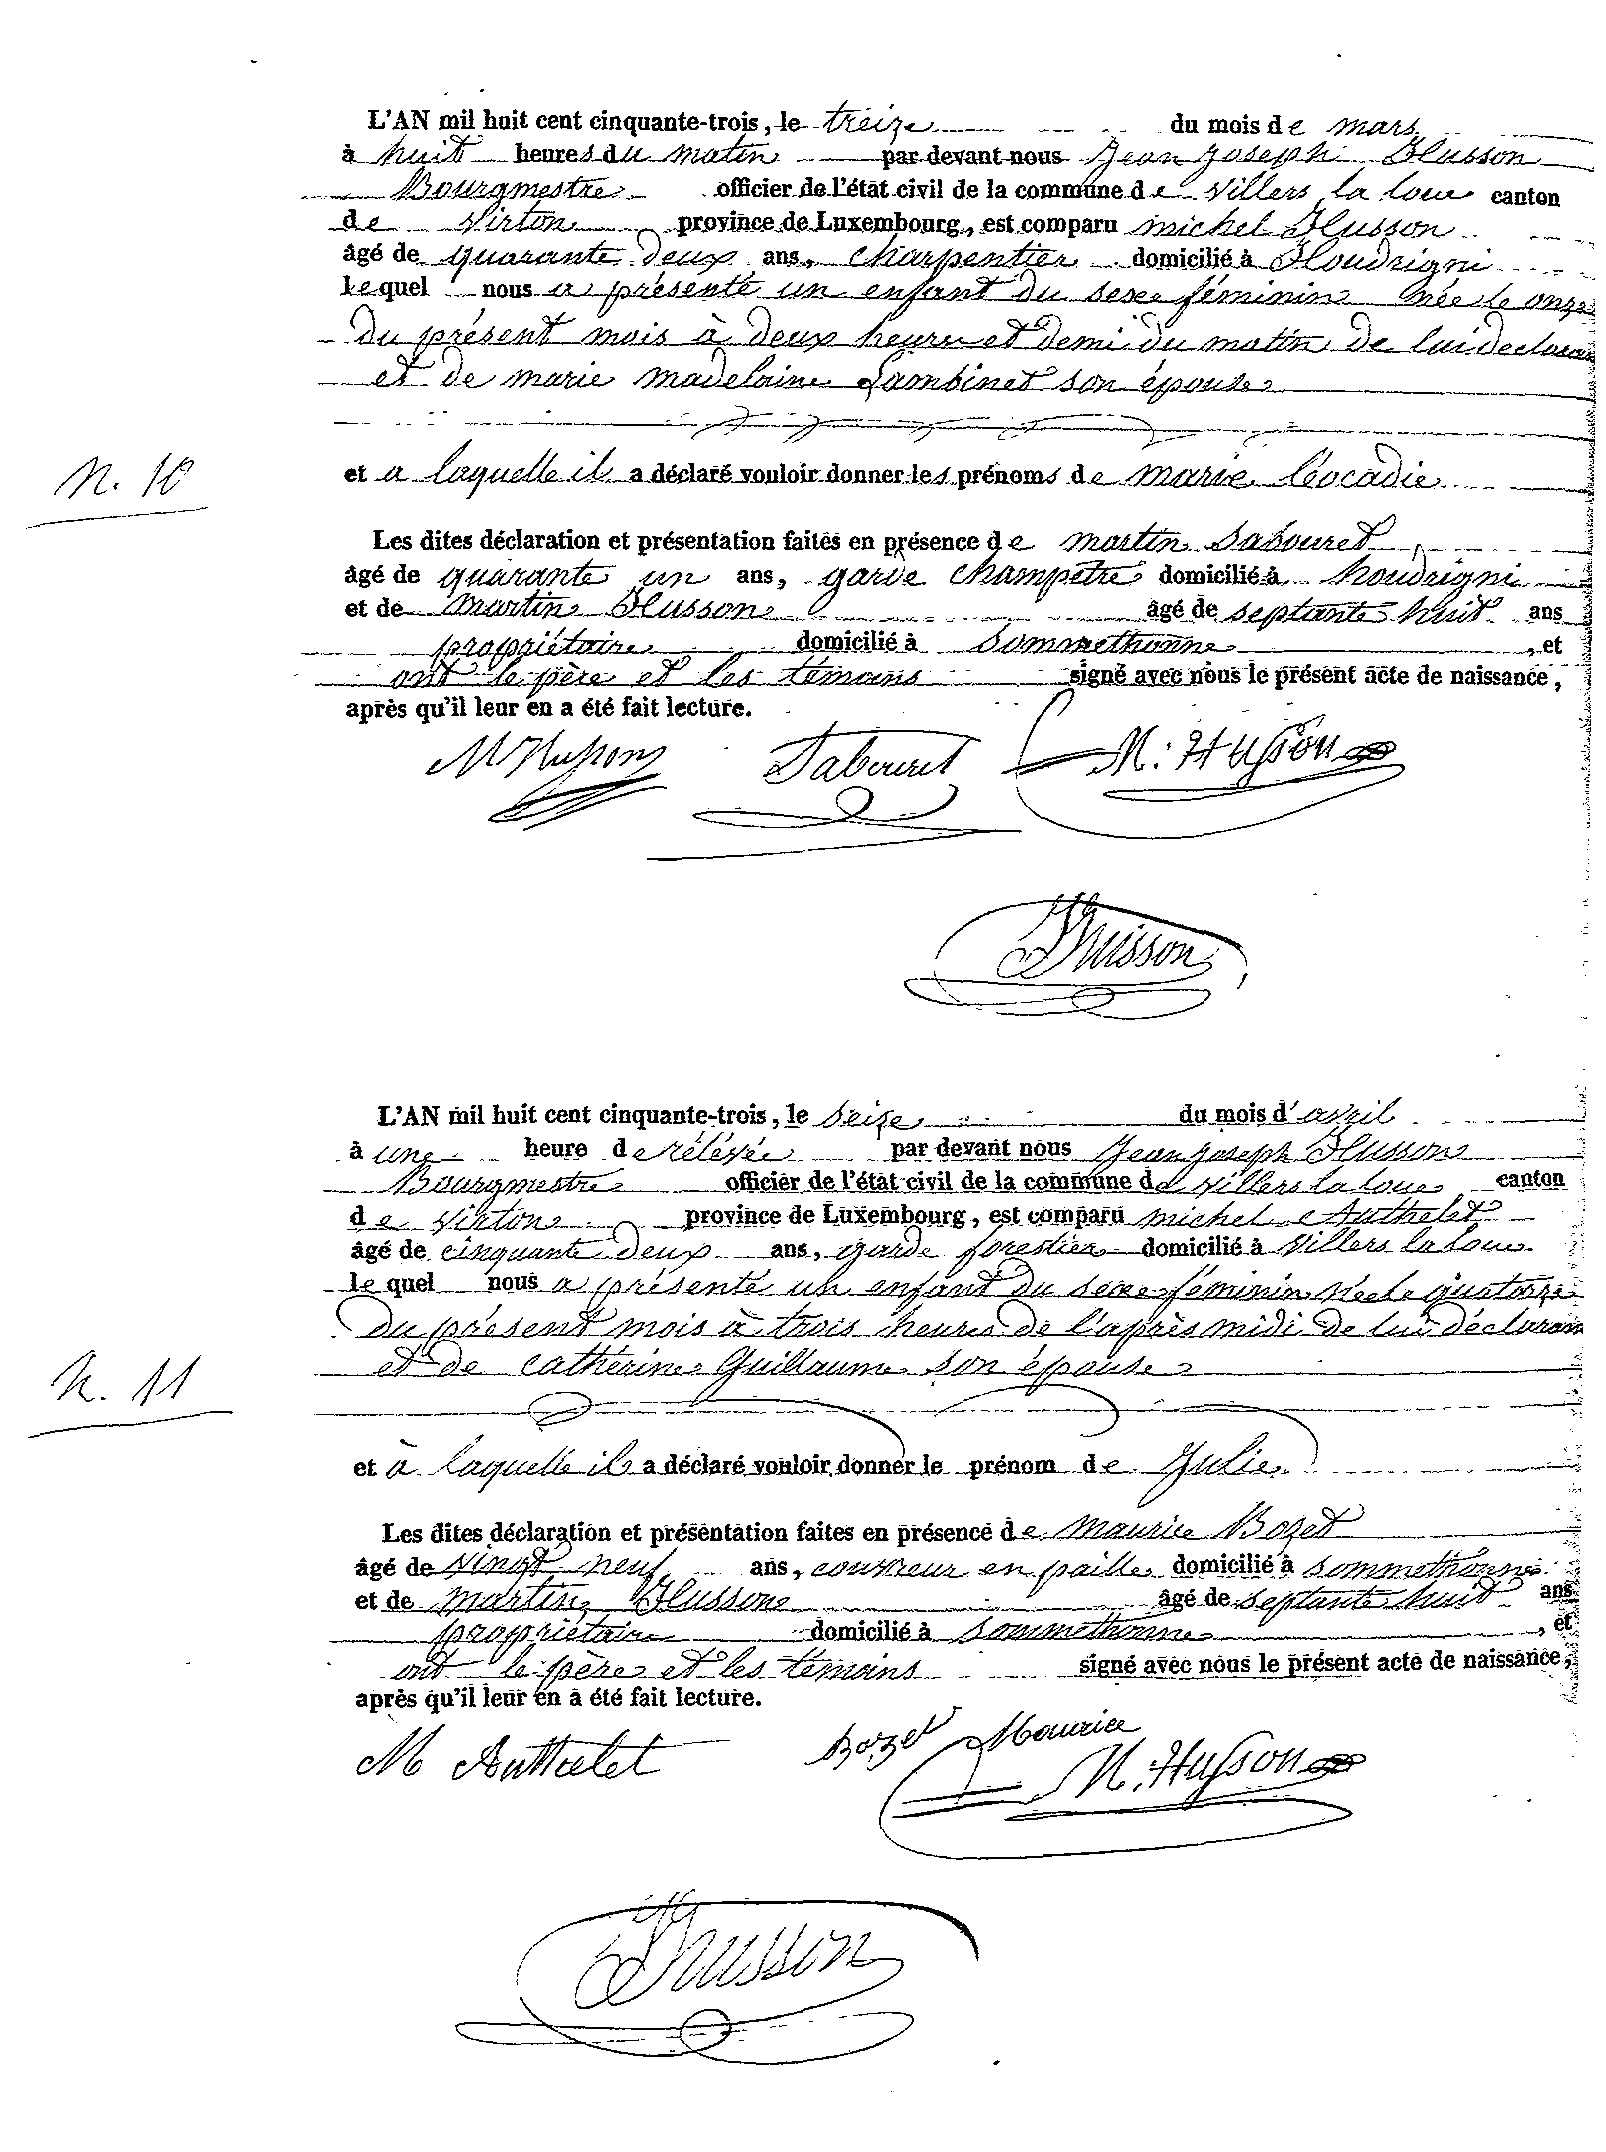 L'AN mil huit cent cinquante-trois, le treize du mois de mars
à huit heures du matin par devant nous Jean Joseph Husson
Bourgmestre officier de l'état civil de la commune de Villers la loue canton
de Virton province de Luxembourg, est comparu michel Husson
âgé de quarante deux ans, charpentier domicilié à Houdrigni
lequel nous a présenté un enfant du sexe féminin née le onze
du présent mois à deux heures et demi du matin de lui déclarant
et de marie madelaine Lambinet son épouse
N. 10
et a laquelle il a déclaré vouloir donner les prénoms de marie léocadie
Les dites déclaration et présentation faites en présence de martin Sabouret
âgé de quarante un ans, garde champêtre domicilié à houdrigni
et de martin Husson âgé de septante huit ans
propriétaire domicilié à Sommethonne, et
ont le père et les témoins signé avec nous le présent acte de naissance,
après qu'il leur en a été fait lecture.
M Husson Sabouret M: Husson
JHusson
L'AN mil huit cent cinquante-trois, le seize du mois d'avril
à une heure de rélévée par devant nous Jean Joseph Husson
Bourgmestre officier de l'état civil de la commune de Villers la loue canton
de Virton province de Luxembourg, est comparu michel Authelet
âgé de cinquante deux ans, garde forestier domicilié à Villers la loue
lequel nous a présenté un enfant du sexe féminin née le quatorze
du présent mois à trois heures de l'après midi de lui déclarant
et de cathérine Guillaume son épouse
N. 11
et à laquelle il a déclaré vouloir donner le prénom de Julie
Les dites déclaration et présentation faites en présence de maurice Bozet
âgé de vingt neuf ans, couvreur en paille domicilié à sommethonne
et de martin Husson âgé de septante huit ans
propriétaire domicilié à Sommethonne, et
ont le père et les témoins signé avec nous le présent acte de naissance,
après qu'il leur en a été fait lecture.
M Authelet Bozet Maurice
M. Husson
JHusson